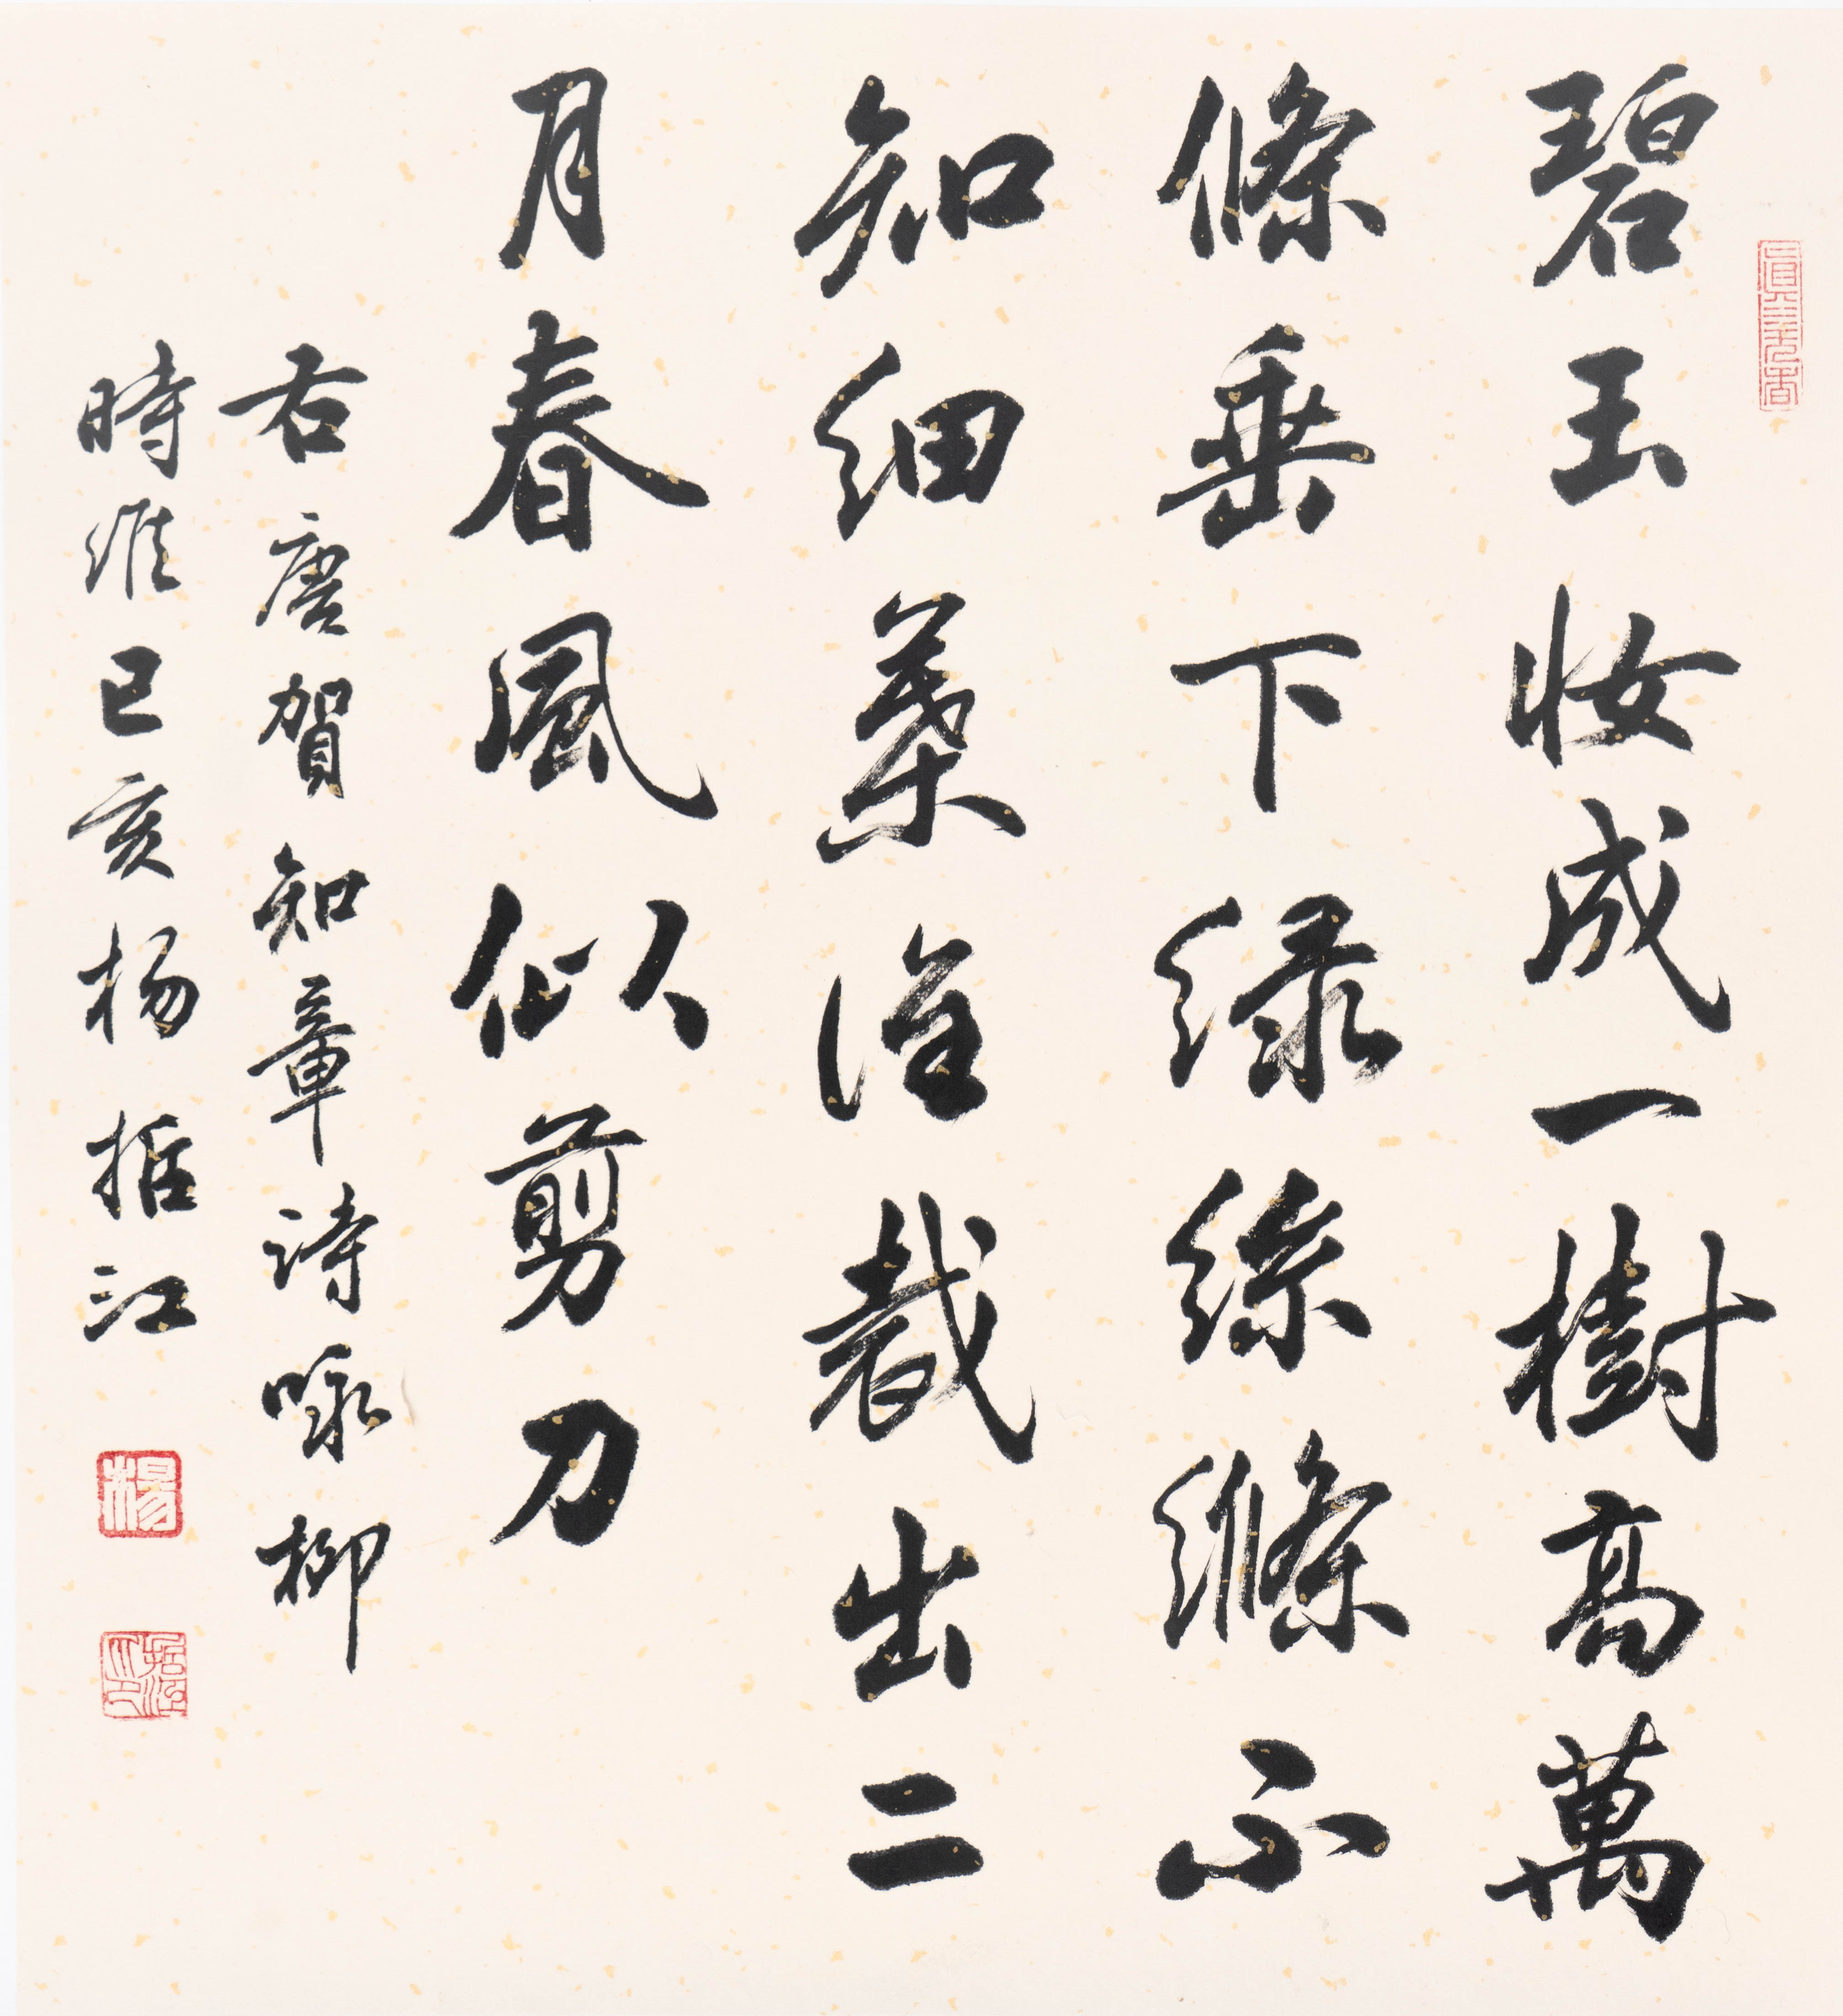 碧玉妝成一樹高萬
條垂下緑絲絛不
知細葉誰裁出二
月春風似剪刀
右唐賀知章詩咏柳
時維己亥楊括江
楊